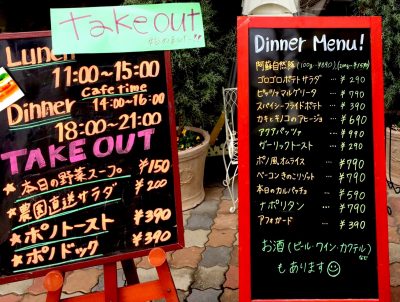 Take out
始めました!
Lunch
11:00〜15:00
Cafe time
Dinner 14:00〜16:00
18:00〜21:00
TAKE OUT
★本日の野菜スープ ¥150
★農園直送サラダ ¥200
★ポノトースト ¥390
★ポノドック ¥390
Dinner Menu!
阿蘇自然豚
ゴロゴロポテトサラダ … ¥290
ピッツァマルゲリータ … ¥790
スパイシーフライドポテト … ¥390
カキとキノコのアヒージョ ¥690
アクアパッツァ … ¥990
ガーリックトースト … ¥290
ポノ風オムライス … ¥790
ベーコンきのこリゾット … ¥790
本日のカルパッチョ … ¥590
ナポリタン … ¥790
アフォガード … ¥390
お酒(ビール・ワイン・カクテル)
など
もあります